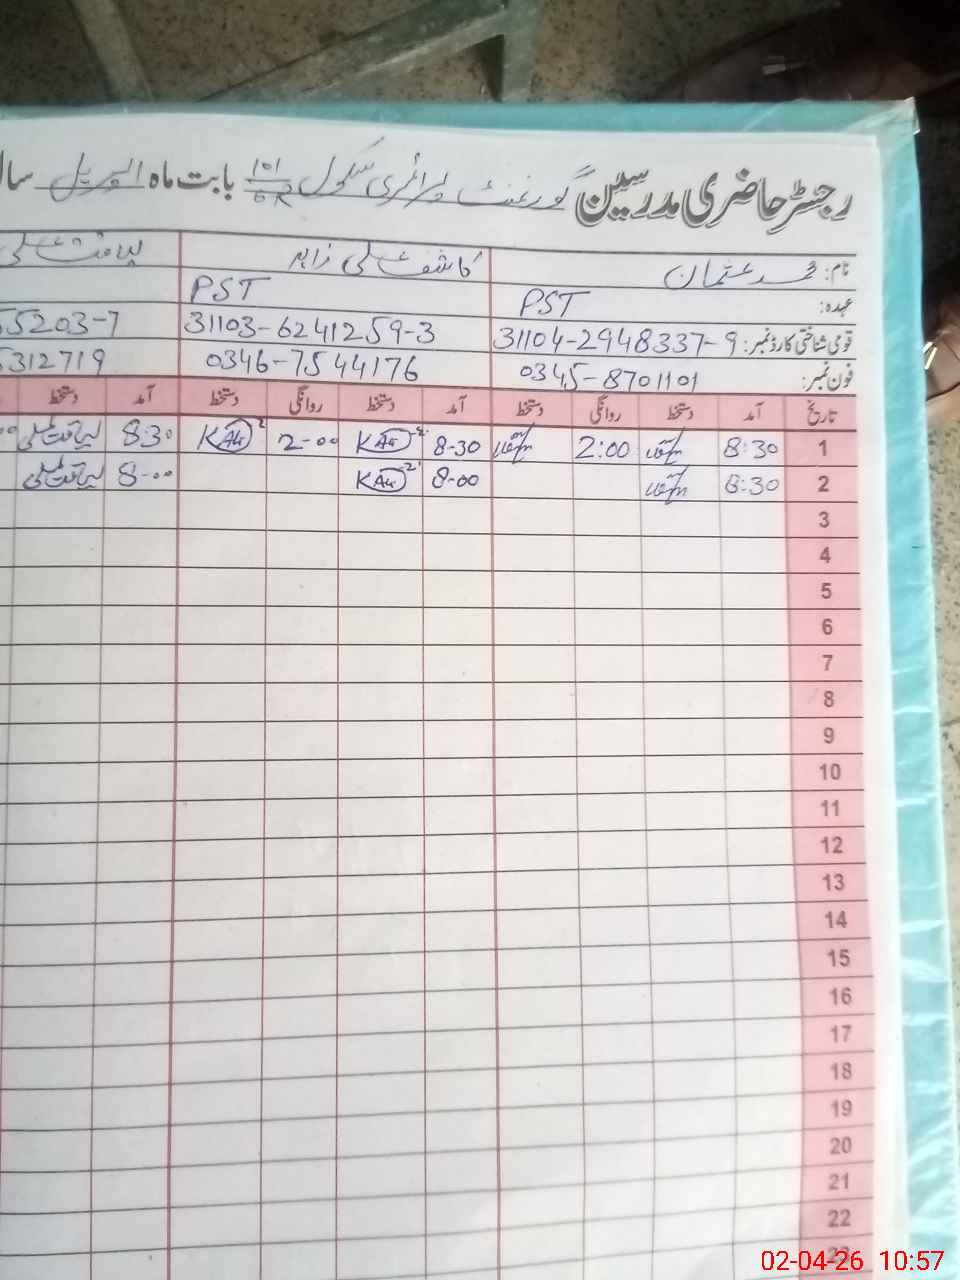 رجسٹر حاضری مدرسین گورنمنٹ پرائمری سکول 101/6R بابت ماہ اپریل سال
نام: محمد عثمان کاشف علی زاہد لیاقت علی
عہدہ: PST PST
قومی شناختی کارڈ نمبر: 31104-2948337-9 31103-6241259-3 55203-7
فون نمبر: 0345-8701101 0346-7544176 5312719
تاریخ آمد دستخط روانگی دستخط آمد دستخط روانگی دستخط آمد دستخط
1 8:30 2:00 8-30 KAli 2-00 KAli 830 لیاقت علی 00
2 8:30 8-00 KAli 8-00 لیاقت علی
3
4
5
6
7
8
9
10
11
12
13
14
15
16
17
18
19
20
21
22
23
02-04-26 10:57